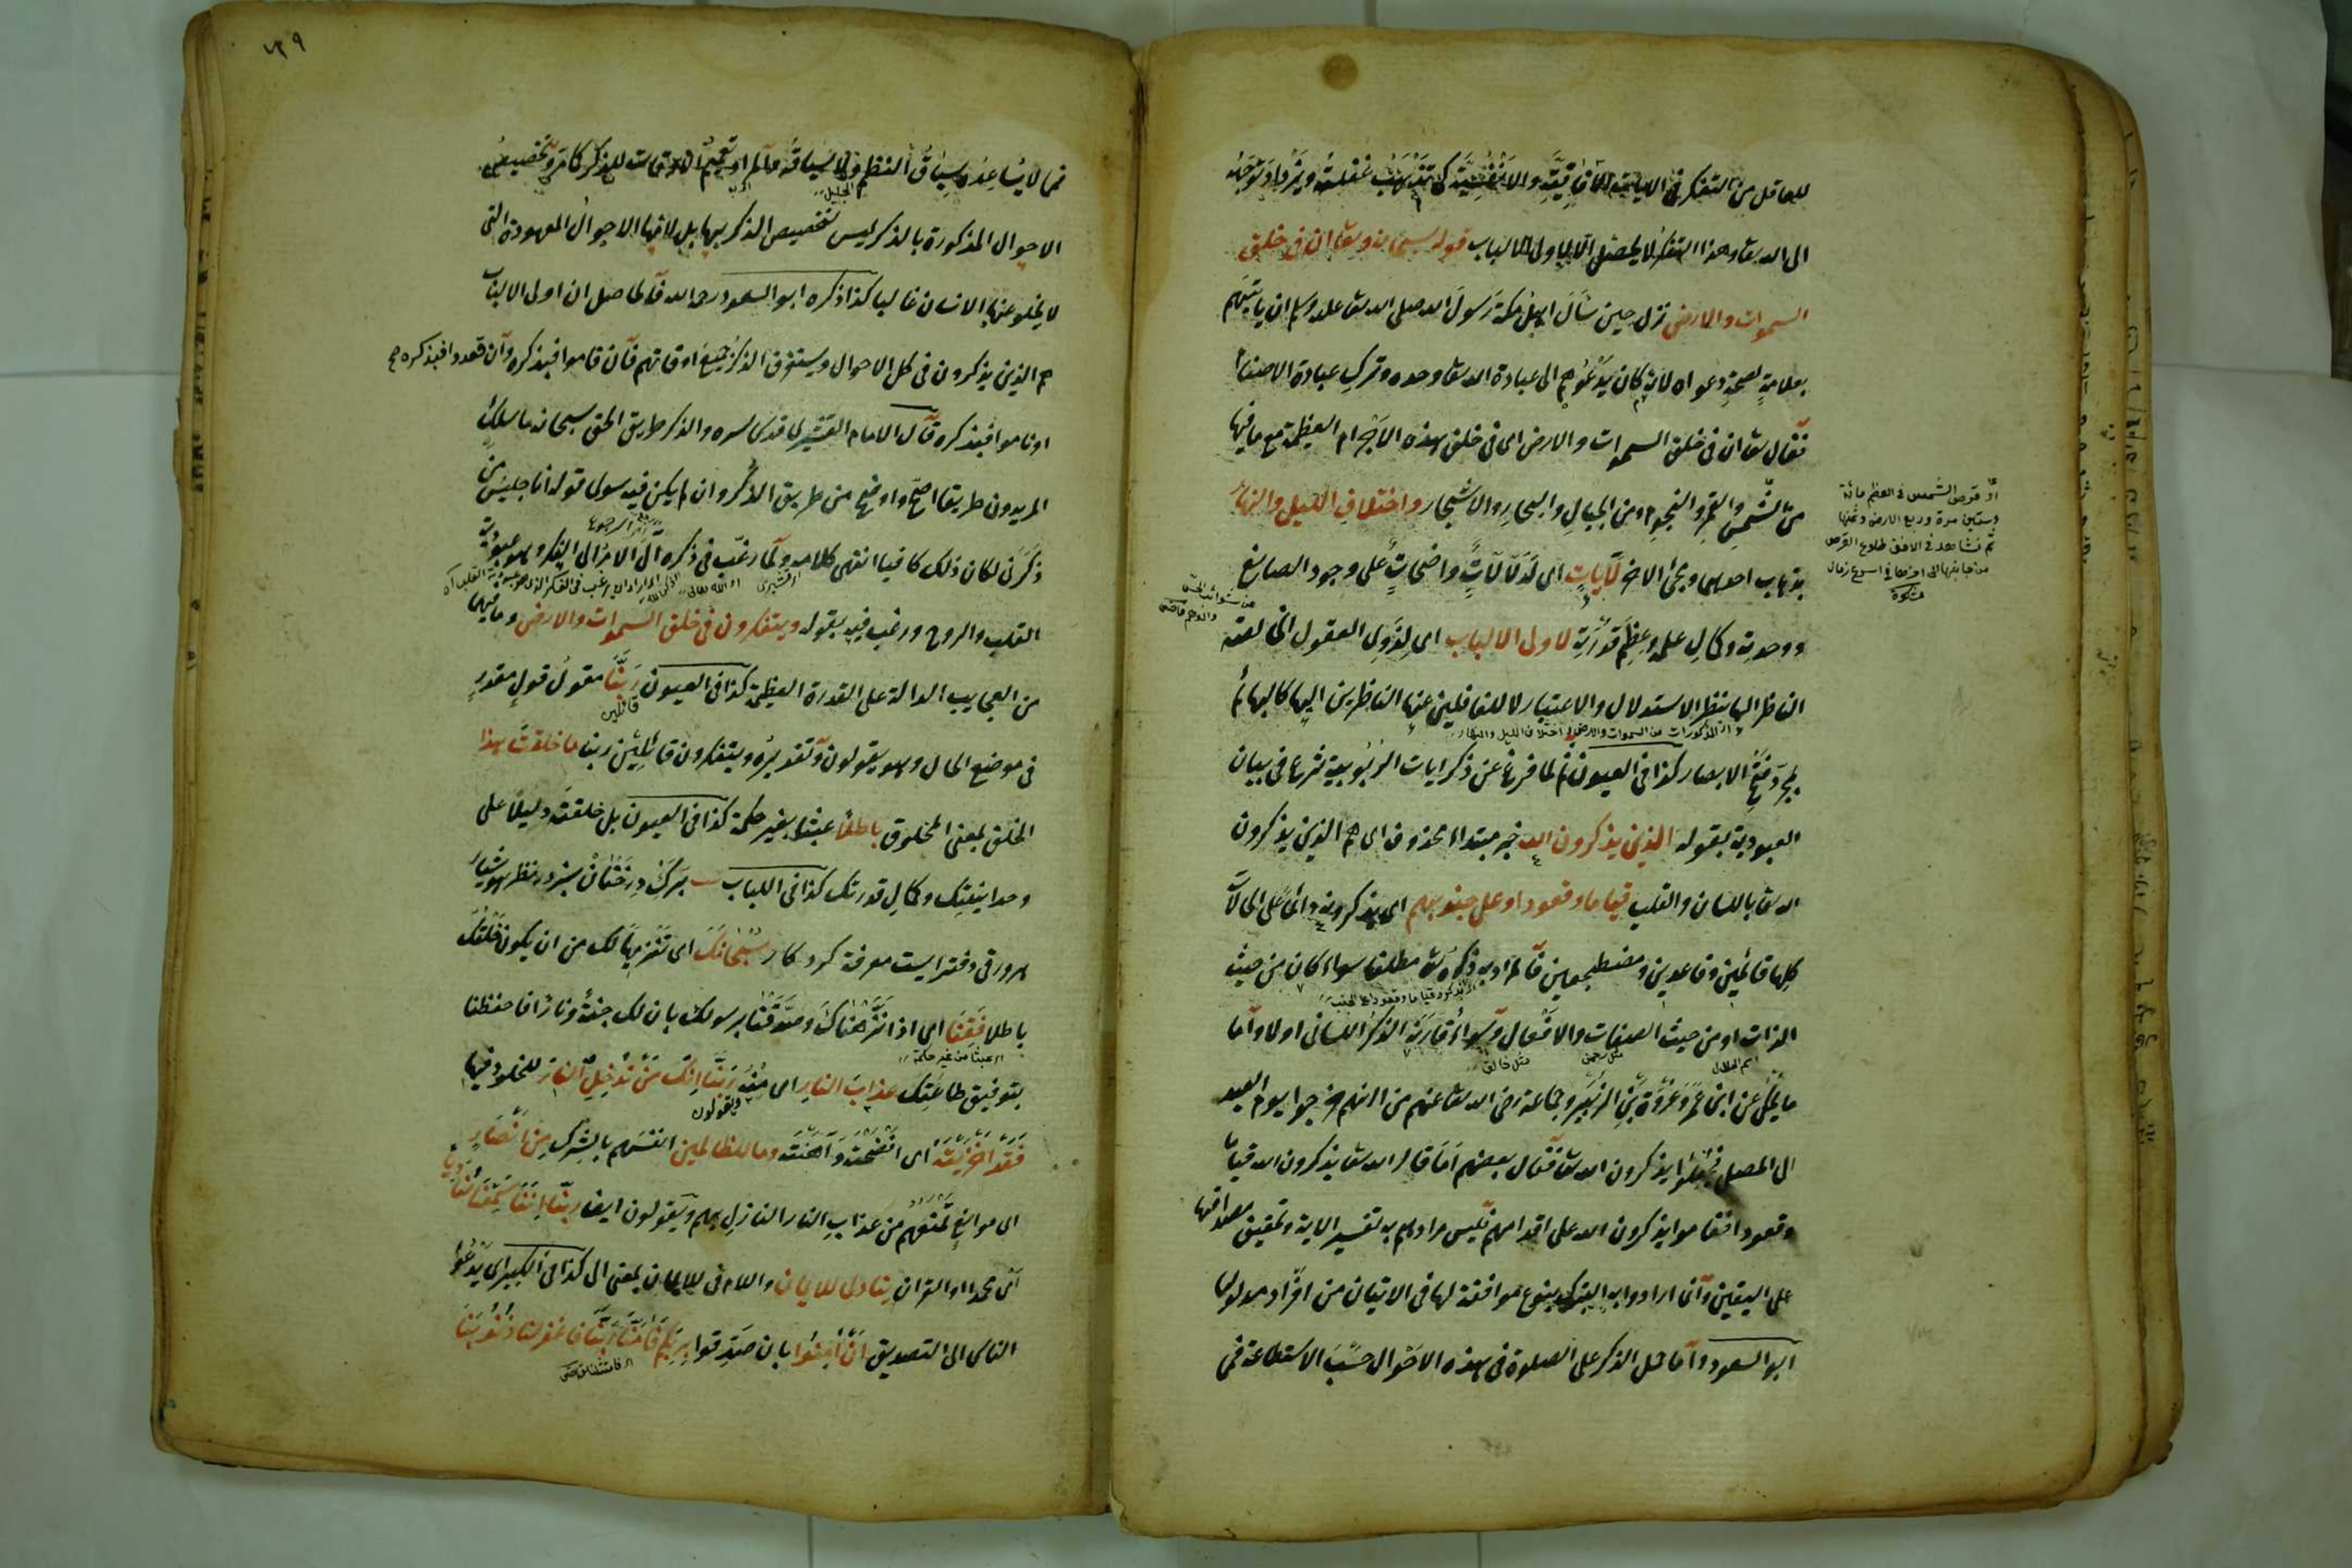 للعاقل من التفكر في الايات الآفاقية والانفسية كي تذهب غفلته ويزداد توجهه
الى الله تعا وهذا التفكر لا يحصل الا لاولى الالباب قوله سبحانه وتعا ان فى خلق
السموات والارض نزل حين سأل اهل مكة رسول الله صلى الله تعا عليه وسلم ان يأتيهم
بعلامة لصحة دعواه لانه كان يدعوهم الى عبادة الله تعا وحده وترك عبادة الاصنام
فقال تعا ان فى خلق السموات والارض اى فى خلق هذه الاجرام العظيمة مع ما فيها
من الشمس والقمر والنجوم ومن الجبال والبحار والاشجار واختلاف الليل والنهار
بذهاب احدهما ومجئ الاخر لآيات اى لدلالات واضحات على وجود الصانع
ووحدته وكمال علمه وعظم قدرته لاولى الالباب اى لذوى العقول الخالصة
الناظر اليها بنظر الاستدلال والاعتبار لا للغافلين عنها الناظرين اليها كالبهائم
اى المذكورات من السموات والارض واختلاف الليل والنهار
بمجرد فتح الابصار كذا فى العيون ثم لما فرغ عن ذكر ايات الربوبية شرع فى بيان
العبودية بقوله الذين يذكرون الله خبر مبتداء محذوف اى هم الذين يذكرون
الله تعا باللسان والقلب قياما وقعودا وعلى جنوبهم اى يذكرونه دائما على الحالات
كلها قائمين وقاعدين ومضطجعين فالمراد به ذكره تعا مطلقا سواء كان من حيث
الذات او من حيث الصفات والافعال وسواء قارنه الذكر اللسانى اولا واما
ما يحكى عن ابن عمر وعروة بن الزبير وجماعة رضى الله تعا عنهم من انهم خرجوا يوم العيد
الى المصلى فجعلوا يذكرون الله تعا فقال بعضهم اما قال الله تعا يذكرون الله قياما
وقعودا فقاموا يذكرون الله على اقدامهم فليس مرادهم به تفسير الاية وتحقيق مصداقها
على اليقين وانما ارادوا به التبرك بنوع موافقة لها فى الاتيان من افراد مدلولها
ابو السعود واما حمل الذكر على الصلوة فى هذه الاحوال حسب الاستطاعة فى
قرص الشمس فى العظم مائة
وستين مرة وربع الارض وثمنها
ثم نشاهد فى الافق طلوع القرص
٣٩
فمما لا يساعده سباق النظم الجليل ولا سياقه فالمراد تعميم الاوقات للذكر كما مر وتخصيص
الاحوال المذكورة بالذكر ليس لتخصيص الذكر بها بل لانها الاحوال المعهودة التى
لا يخلو عنها الانسان غالبا كذا ذكره ابو السعود رحمه الله فالحاصل ان اولى الالباب
هم الذين يذكرون فى كل الاحوال ويستغرق الذكر جميع اوقاتهم فان قاموا فبذكره وان قعدوا فبذكره
او ناموا فبذكره قال الامام القشيرى قدس سره والذكر طريق الحق سبحانه ما سلك
المريدون طريقا اصح واوضح من طريق الذكر وان لم يكن فيه سوى قوله انا جليس من
ذكرنى لكان ذلك كافيا انتهى كلامه ولما رغب فى ذكره آل الامر الى الفكر وهو عبودية
القلب والروح ورغب فيه بقوله ويتفكرون فى خلق السموات والارض وما فيهما
من العجايب الدالة على القدرة العظيمة كذا فى العيون ربنا مقول قول مقدر
قائلين
فى موضع الحال وهو يقولون وتقديره ويتفكرون قائلين ربنا ما خلقت هذا
الخلق بمعنى المخلوق باطلا عبثا بغير حكمة كذا فى العيون بل خلقته دليلا على
وحدانيتك وكمال قدرتك كذا فى اللباب برك درختان سبز در نظر هوشيار
هر ورقى دفتريست معرفة كردكار سبحانك اى تنزيها لك من ان يكون خلقك
باطلا فقنا اى اذا نزهناك وصدقنا برسولك بان لك جنة ونارا فاحفظنا
اى عبثا من غير حكمة
بتوفيق طاعتك عذاب النار اى منه ربنا انك من تدخل النار للخلود فيها
ويقولون
فقد اخزيته اى افضحته واهنته وما للظالمين انفسهم بالشرك من انصار
اى موانع تمنعهم من عذاب النار النازل بهم ويقولون ايضا ربنا اننا سمعنا مناديا
اى محمدا او القران ينادى للايمان واللام فى للايمان بمعنى الى كذا فى الكبير اى يدعوا
الناس الى التصديق ان آمنوا بان صدقوا بربكم فامنا ربنا فاغفر لنا ذنوبنا